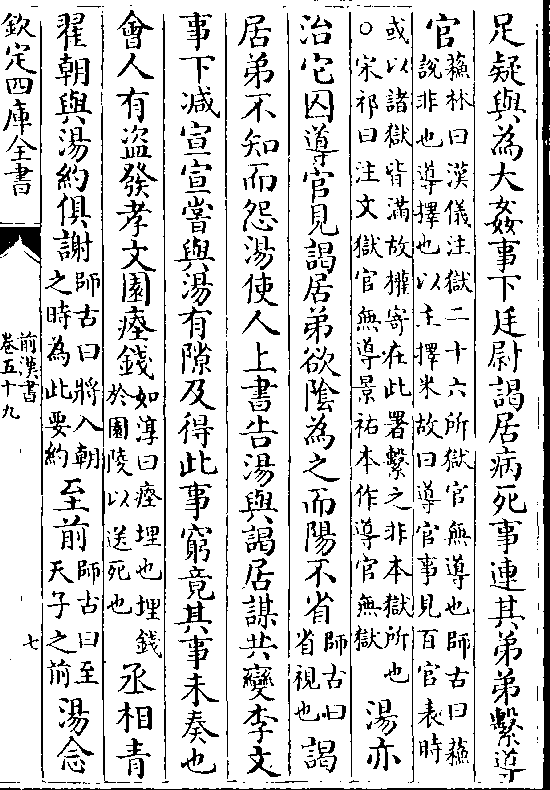 足疑與為大姦事下廷尉謁居病死事連其弟弟繫導
官蘇林曰漢儀注獄二十六所獄官無導也師古曰蘇說非也導擇也以主擇米故曰導官事見百官表時
或以諸獄皆滿故權寄在此署繫之非本獄所也○宋祁曰注文獄官無導景祐本作導官無獄湯亦
治它囚導官見謁居弟欲陰為之而陽不省師古曰省視也謁
居弟不知而怨湯使人上書告湯與謁居謀共變李文
事下减宣宣嘗與湯有隙及得此事窮竟其事未奏也
會人有盜發孝文園瘞錢如淳曰瘞埋也埋錢於園陵以送死也丞相青
翟朝與湯約俱謝師古曰將入朝之時為此要約至前師古曰至天子之前湯念
欽定四庫全書
前漢書
卷五十九
七